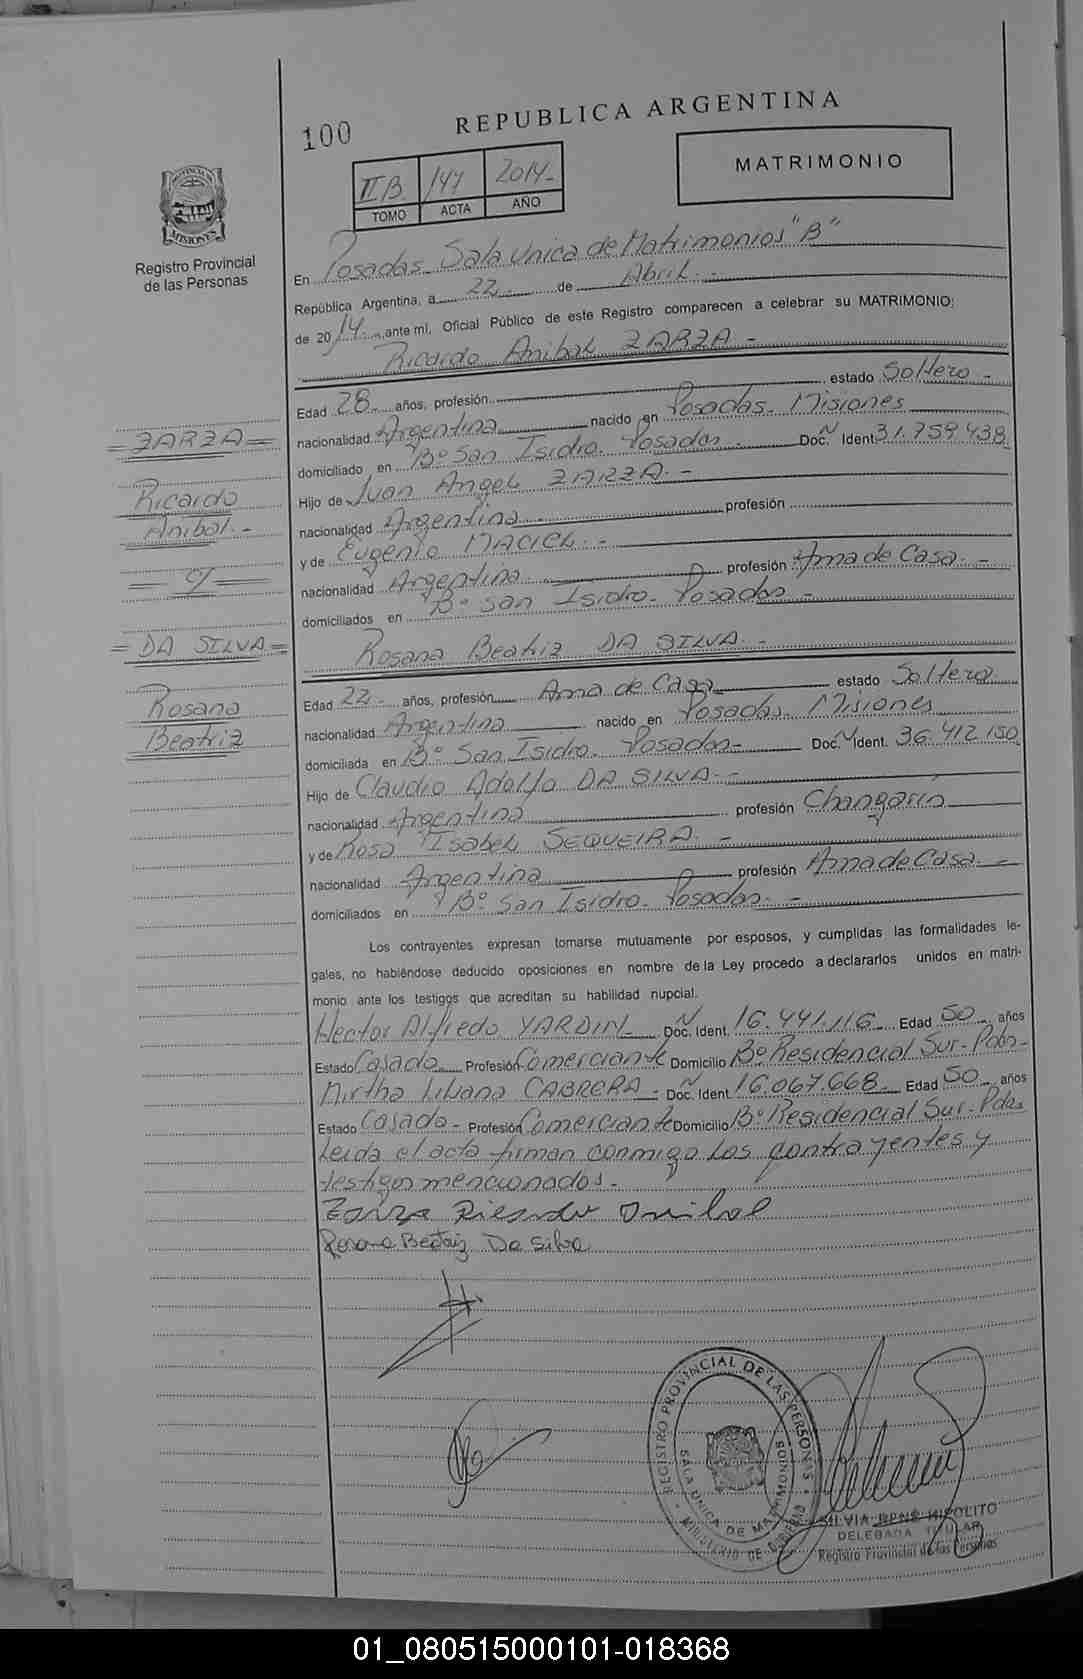 100
REPUBLICA ARGENTINA
MATRIMONIO
II B 147 2014-
TOMO ACTA AÑO
PROVINCIA DE
MISIONES
Registro Provincial
de las Personas
En Posadas Sala Unica de Matrimonios "B"
República Argentina, a 22.- de Abril.-
de 2014.- ante mi, Oficial Público de este Registro comparecen a celebrar su MATRIMONIO:
Ricardo Anibal ZARZA -
Edad 28.- años, profesión estado Soltero -
nacionalidad Argentina nacido en Posadas. Misiones
= ZARZA =
domiciliado en Bº San Isidro. Posadas - Doc. N Ident 31.759.438
Ricardo
Hijo de Juan Angel ZARZA. -
Anibal. -
nacionalidad Argentina profesión
y de Eugenia MACIEL. -
= c/ =
nacionalidad Argentina profesión Ama de Casa. -
domiciliados en Bº San Isidro. Posadas -
= DA SILVA =
Rosana Beatriz DA SILVA. -
Rosana
Edad 22.- años, profesión Ama de Casa estado Soltera
Beatriz
nacionalidad Argentina nacido en Posadas Misiones
domiciliada en Bº San Isidro. Posadas- Doc. N Ident. 36.412.150
Hijo de Claudio Adolfo DA SILVA. -
nacionalidad Argentina profesión Changarin
y de Rosa Isabel SEQUEIRA. -
nacionalidad Argentina profesión Ama de Casa. -
domiciliados en Bº San Isidro. Posadas. -
Los contrayentes expresan tomarse mutuamente por esposos, y cumplidas las formalidades le-
gales, no habiéndose deducido oposiciones en nombre de la Ley procedo a declararlos unidos en matri-
monio ante los testigos que acreditan su habilidad nupcial.
Hector Alfredo YARDIN Doc. N Ident. 16.441.116 Edad 50 años
Estado Casado Profesión Comerciante Domicilio Bº Residencial Sur- Pdas-
Mirtha Liliana CABRERA - Doc. N Ident. 16.067.668 - Edad 50 años
Estado Casada - Profesión Comerciante Domicilio Bº Residencial Sur - Pdas
Leida el acta firman conmigo los contrayentes y
testigos mencionados. -
Zarza Ricardo Anibal
Rosana Beatriz Da Silva
REGISTRO PROVINCIAL DE LAS PERSONAS
SALA UNICA DE MATRIMONIOS
MINISTERIO DE GOBIERNO
SILVIA RENE HIPOLITO
DELEGADA TITULAR
Registro Provincial de las Personas
01_080515000101-018368